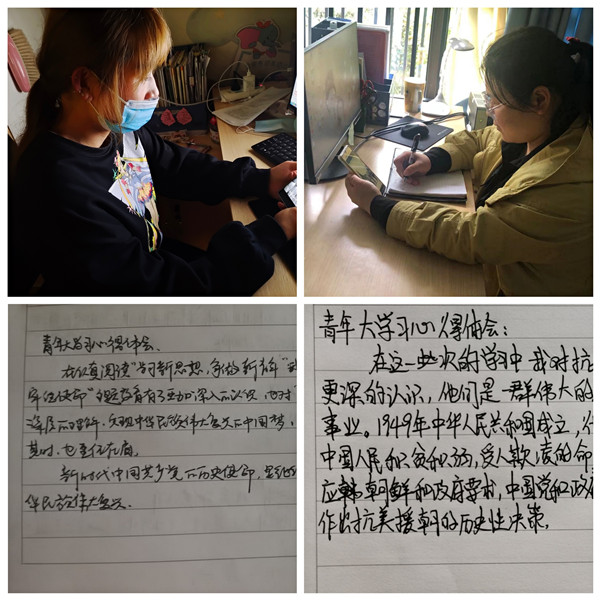 青年大学习心得体会.
在认真阅读"学习新思想,争做新青年"
牢记使命"主题教育有了更加深入的认识,
深层的理解,实现中华民族伟大复兴中国梦,
其时,也责任在肩.
新时代中国共产党的历史使命,
华民族伟大复兴.
青年大学习心得体会:
在这一次的学习中我对抗
更深的认识,他们是一群伟大的
事业。1949年中华人民共和国成立,
中国人民积贫积弱,受人欺凌的命
应韩朝鲜和政府要求,中国党和政府
作出抗美援朝的历史性决策。